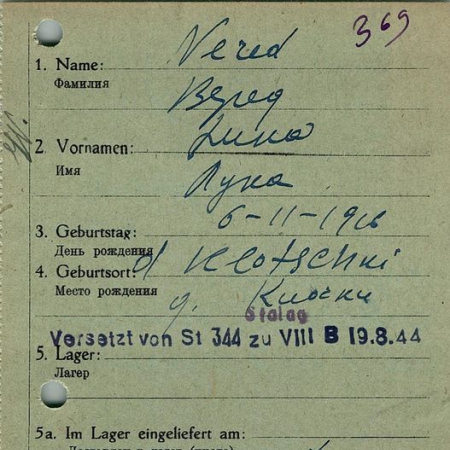 369
1. Name: Vered
Фамилия Веред
2. Vornamen:
Имя Лука
3. Geburtstag: 6-11-1916
День рождения
4. Geburtsort: d Klotschki
Место рождения д. Клочки
Stalag
Versetzt von St 344 zu VIII B 19.8.44
5. Lager:
Лагерь
5a. Im Lager eingeliefert am: